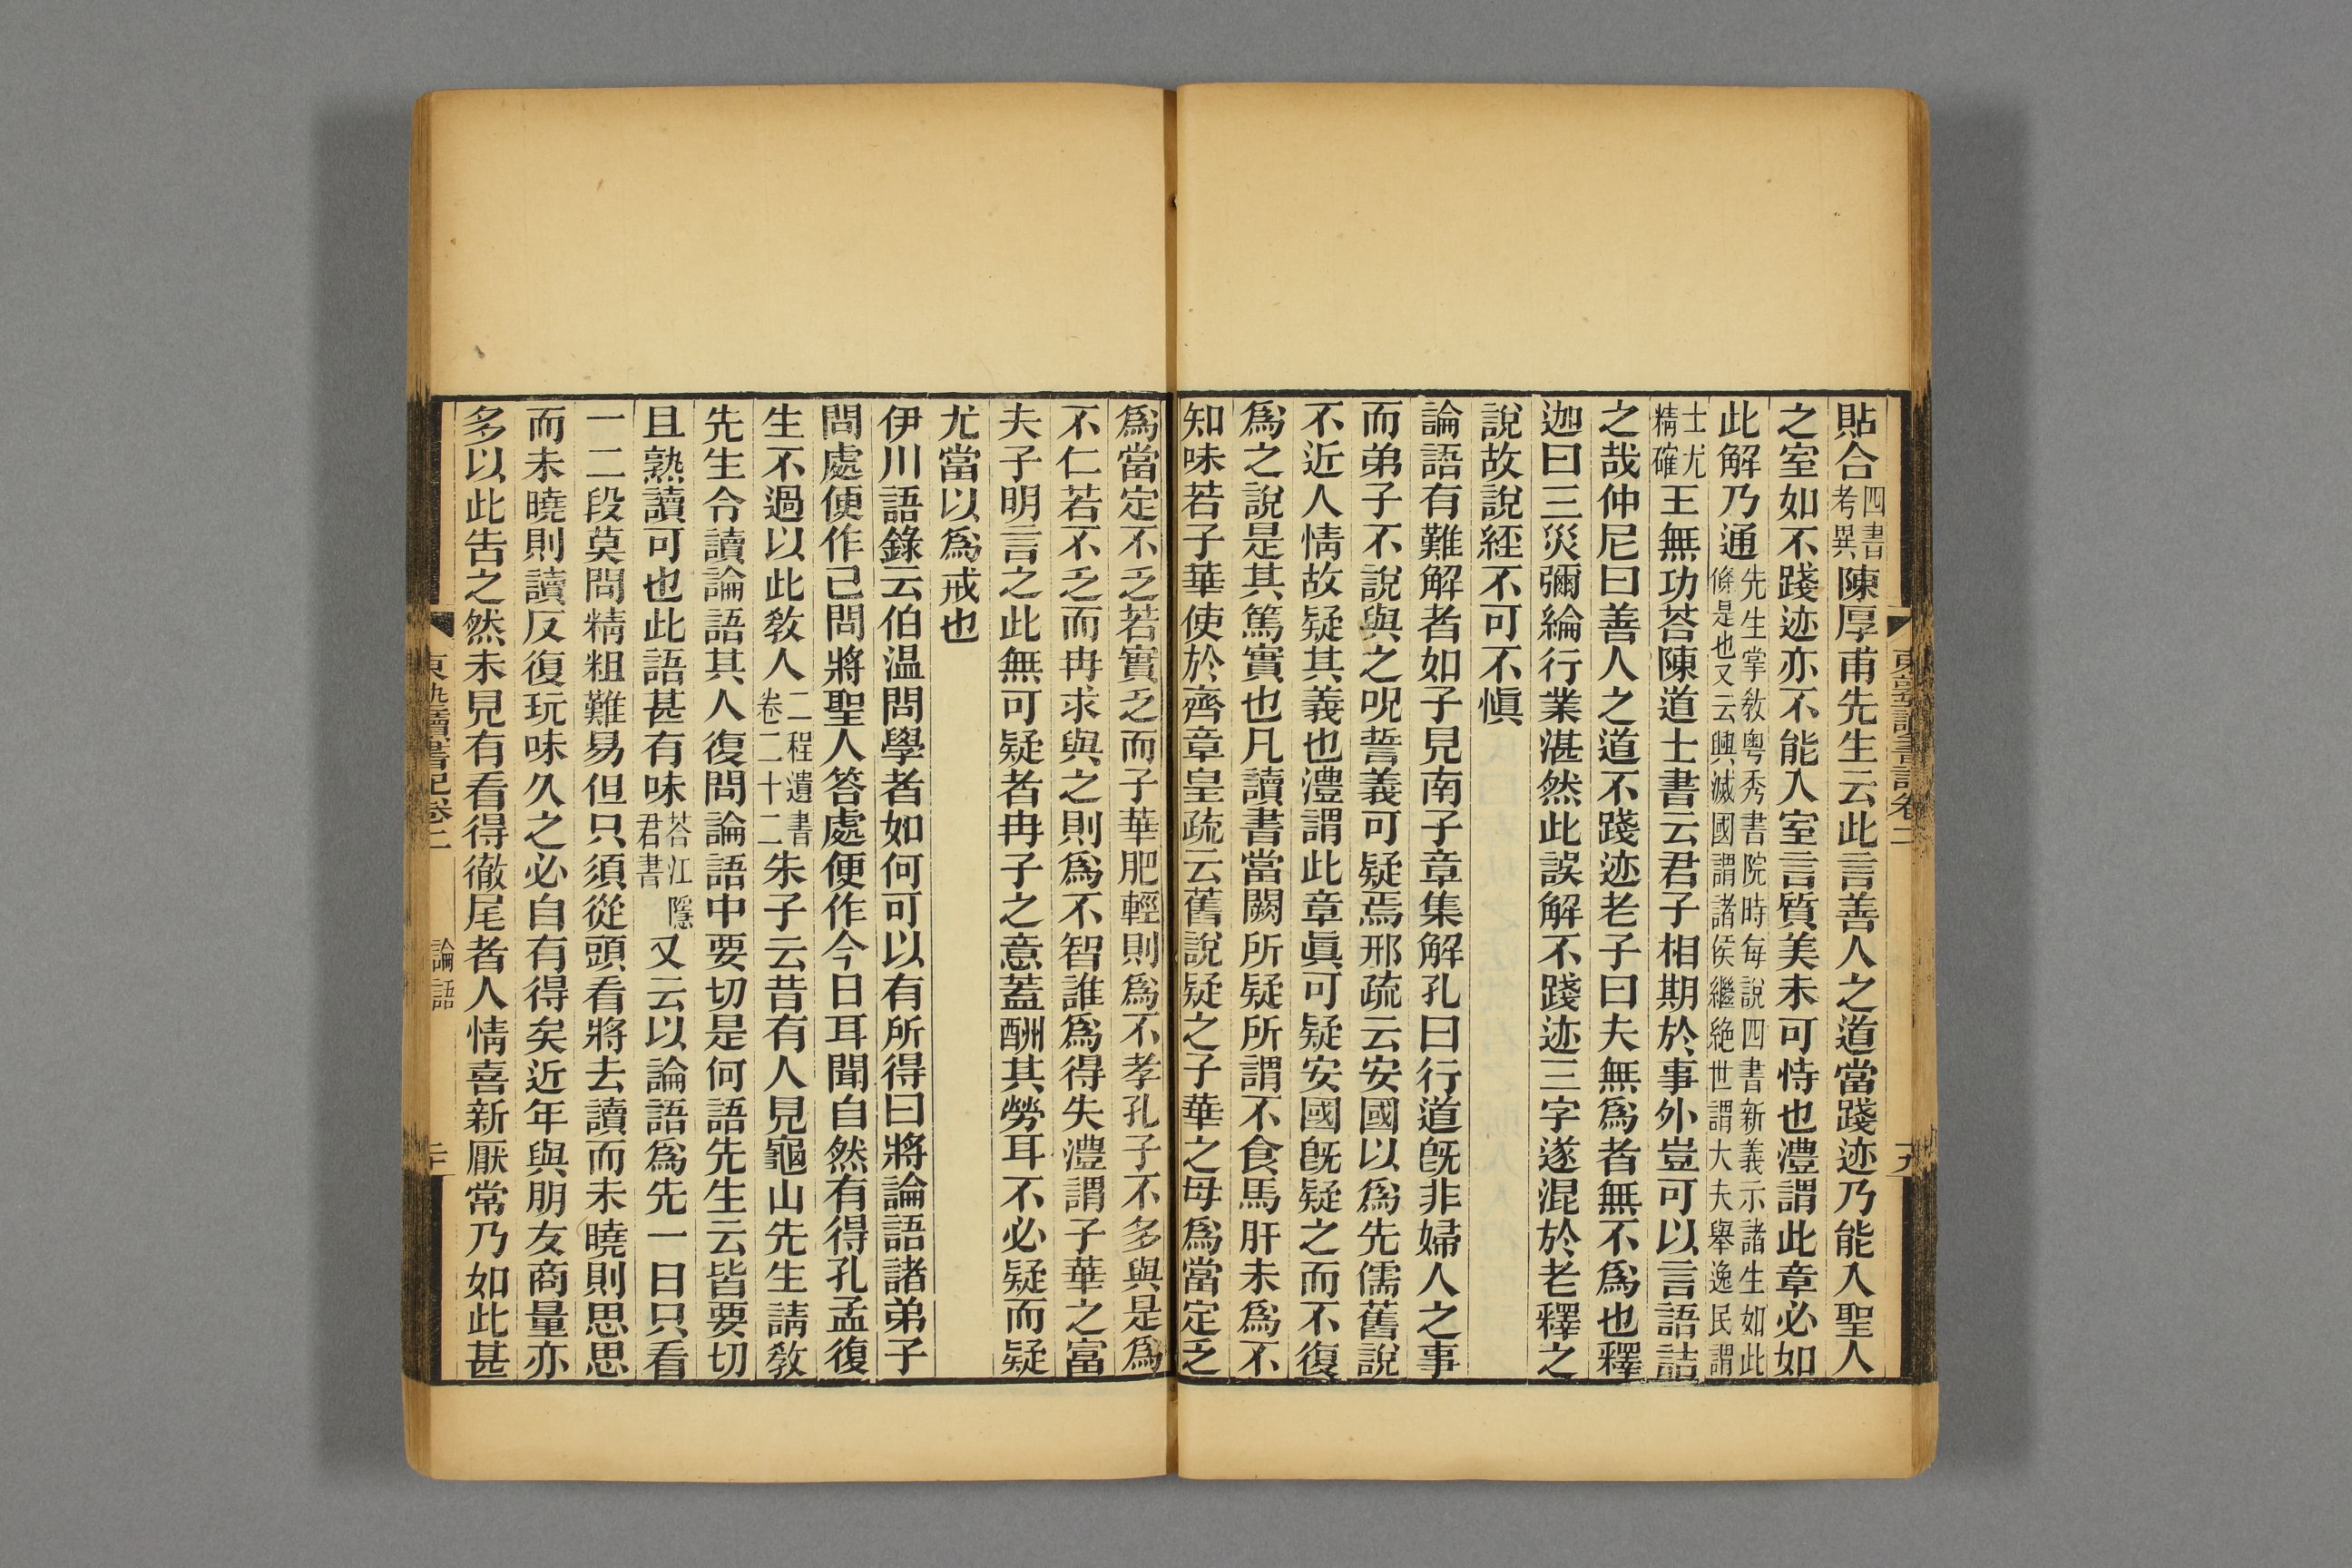 貼合四書考異陳厚甫先生云此言善人之道當踐迹乃能入聖人
之室如不踐迹亦不能入室言質美未可恃也澧謂此章必如
此解乃通先生掌敎粤秀書院時每說四書新義示諸生如此條是也又云興滅國謂諸侯繼絶世謂大夫舉逸民謂
士尤精確王無功荅陳道士書云君子相期於事外豈可以言語詰
之哉仲尼曰善人之道不踐迹老子曰夫無爲者無不爲也釋
迦曰三災彌綸行業湛然此誤解不踐迹三字遂混於老釋之
說故說經不可不愼
論語有難解者如子見南子章集解孔曰行道旣非婦人之事
而弟子不說與之呪誓義可疑焉邢疏云安國以爲先儒舊說
不近人情故疑其義也澧謂此章眞可疑安國旣疑之而不復
爲之說是其篤實也凡讀書當闕所疑所謂不食馬肝未爲不
知味若子華使於齊章皇疏云舊說疑之子華之母爲當定乏
爲當定不乏若實乏而子華肥輕則爲不孝孔子不多與是爲
不仁若不乏而冉求與之則爲不智誰爲得失澧謂子華之富
夫子明言之此無可疑者冉子之意蓋酬其勞耳不必疑而疑
尤當以爲戒也
伊川語錄云伯温問學者如何可以有所得曰將論語諸弟子
問處便作已問將聖人答處便作今日耳聞自然有得孔孟復
生不過以此敎人二程遺書卷二十二朱子云昔有人見龜山先生請敎
先生令讀論語其人復問論語中要切是何語先生云皆要切
且熟讀可也此語甚有味荅江隱君書又云以論語爲先一日只看
一二段莫問精粗難易但只須從頭看將去讀而未曉則思思
而未曉則讀反復玩味久之必自有得矣近年與朋友商量亦
多以此告之然未見有看得徹尾者人情喜新厭常乃如此甚
東塾讀書記卷二
論語